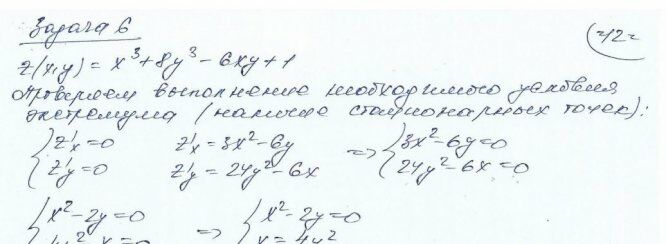 Задача 6
(12)
z(x,y) = x³ + 8y³ - 6xy + 1
Проверяем выполнение необходимого условия
экстремума (наличие стационарных точек):
{ z'x = 0   z'x = 3x² - 6y   => { 3x² - 6y = 0
{ z'y = 0   z'y = 24y² - 6x   { 24y² - 6x = 0
{ x² - 2y = 0   => { x² - 2y = 0
4y² - x = 0   x = 4y²